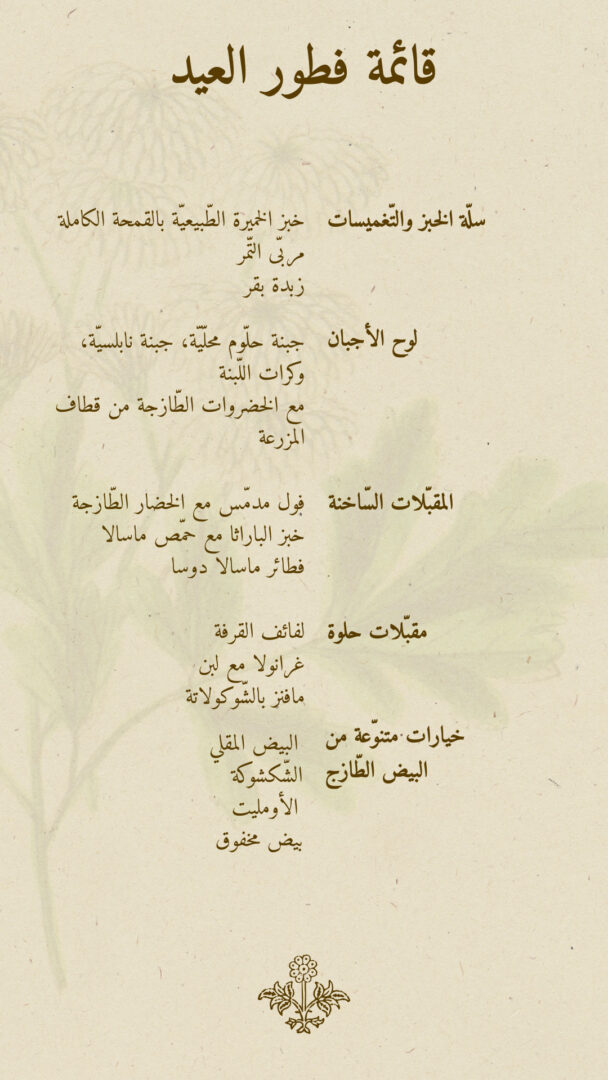 قائمة فطور العيد
سلّة الخبز والتّغميسات
خبز الخميرة الطّبيعيّة بالقمحة الكاملة
مربّى التّمر
زبدة بقر
لوح الأجبان
جبنة حلّوم محلّيّة، جبنة نابلسيّة،
وكرات اللّبنة
مع الخضروات الطّازجة من قطاف
المزرعة
المقبّلات السّاخنة
فول مدمّس مع الخضار الطّازجة
خبز الباراثا مع حمّص ماسالا
فطائر ماسالا دوسا
مقبّلات حلوة
لفائف القرفة
غرانولا مع لبن
مافنز بالشّوكولاتة
خيارات متنوّعة من
البيض الطّازج
البيض المقلي
الشّكشوكة
الأومليت
بيض مخفوق